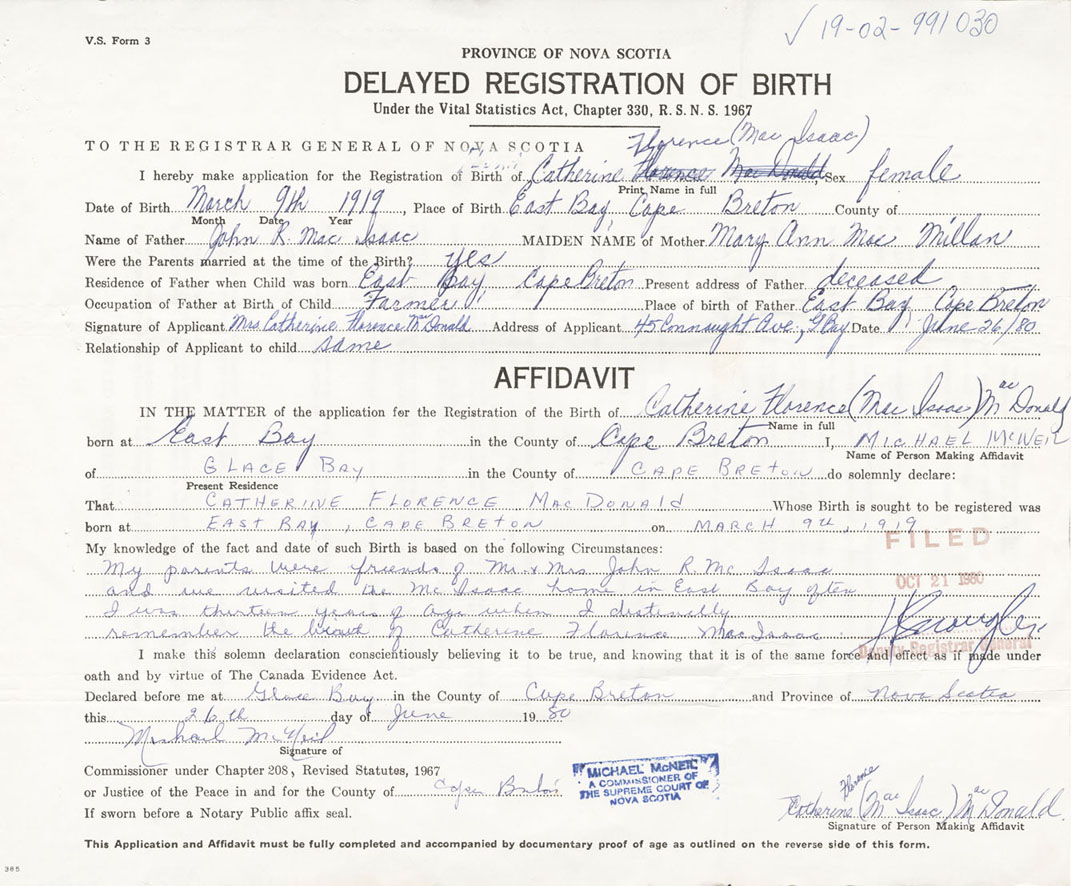 V.S. Form 3
√ 19-02-991030
PROVINCE OF NOVA SCOTIA
DELAYED REGISTRATION OF BIRTH
Under the Vital Statistics Act, Chapter 330, R.S.N.S. 1967
Florence (Mac Isaac)
TO THE REGISTRAR GENERAL OF NOVA SCOTIA
I hereby make application for the Registration of Birth of Catherine Florence MacDonald, Sex female
Print Name in full
Date of Birth March 9th 1919, Place of Birth East Bay, Cape Breton County of
Month Date Year
Name of Father John R. Mac Isaac MAIDEN NAME of Mother Mary Ann Mac Millan
Were the Parents married at the time of the Birth? yes
Residence of Father when Child was born East Bay, Cape Breton Present address of Father deceased
Occupation of Father at Birth of Child Farmer Place of birth of Father East Bay, Cape Breton
Signature of Applicant Mrs. Catherine Florence McDonald Address of Applicant 45 Connaught Ave., G Bay Date June 26/80
Relationship of Applicant to child same
AFFIDAVIT
IN THE MATTER of the application for the Registration of the Birth of Catherine Florence (Mac Isaac) MacDonald
Name in full
born at East Bay in the County of Cape Breton I, MICHAEL McNEIL
Name of Person Making Affidavit
of GLACE BAY in the County of CAPE BRETON do solemnly declare:
Present Residence
That CATHERINE FLORENCE MacDONALD Whose Birth is sought to be registered was
born at EAST BAY, CAPE BRETON on MARCH 9th, 1919
FILED
My knowledge of the fact and date of such Birth is based on the following Circumstances:
My parents were friends of Mr. & Mrs John R. Mc Isaac
OCT 21 1980
and we visited the Mc Isaac home in East Bay often
I was thirteen years of age when I distinally
remember the birth of Catherine Florence MacIsaac
Deputy Registrar General
I make this solemn declaration conscientiously believing it to be true, and knowing that it is of the same force and effect as if made under
oath and by virtue of The Canada Evidence Act.
Declared before me at Glace Bay in the County of Cape Breton and Province of Nova Scotia
this 26th day of June 1980
Michael McNeil
Signature of
Commissioner under Chapter 208, Revised Statutes, 1967
or Justice of the Peace in and for the County of Cape Breton
If sworn before a Notary Public affix seal.
MICHAEL McNEIL
A COMMISSIONER OF
THE SUPREME COURT OF
NOVA SCOTIA
Florence
Catherine (Mac Isaac) MacDonald
Signature of Person Making Affidavit
This Application and Affidavit must be fully completed and accompanied by documentary proof of age as outlined on the reverse side of this form.
385